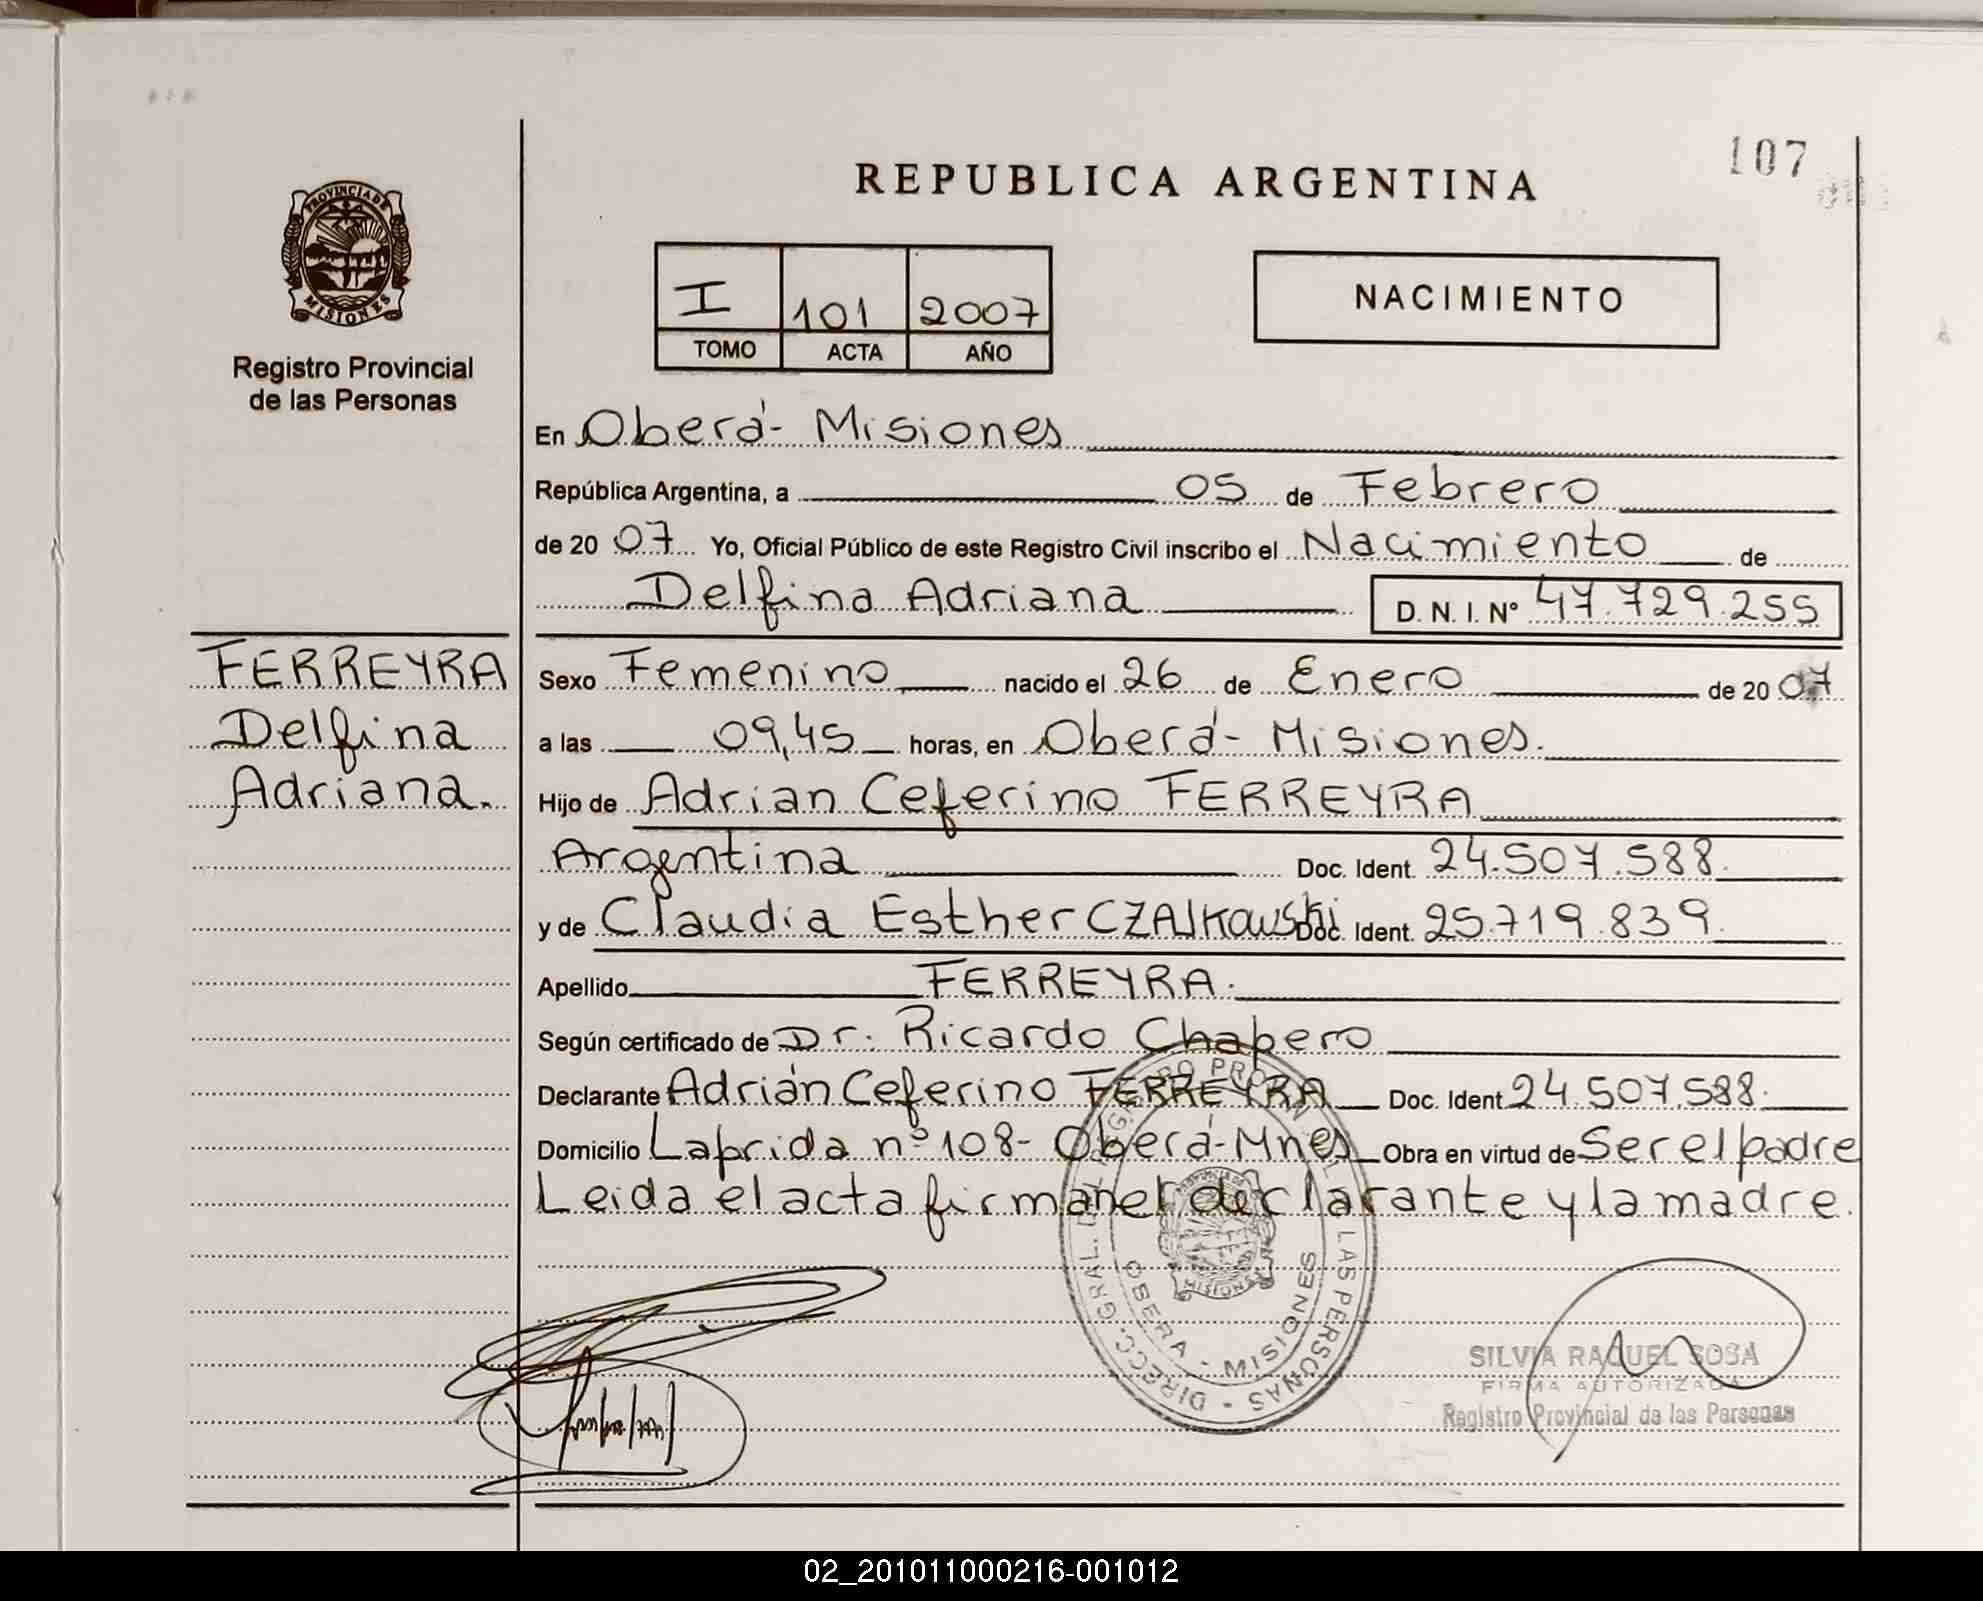 107
REPUBLICA ARGENTINA
PROVINCIA DE
MISIONES
Registro Provincial
de las Personas
I 101 2007
TOMO ACTA AÑO
NACIMIENTO
En Oberá - Misiones
República Argentina, a 05 de Febrero
de 2007 Yo, Oficial Público de este Registro Civil inscribo el Nacimiento de
Delfina Adriana D. N. I. Nº 47.729.255
FERREYRA
Delfina
Adriana.
Sexo Femenino nacido el 26 de Enero de 2007
a las 09,45 horas, en Oberá - Misiones.
Hijo de Adrian Ceferino FERREYRA
Argentina Doc. Ident. 24.507.588.
y de Claudia Esther CZAJKowski Doc. Ident. 25.719.839.
Apellido FERREYRA.
Según certificado de Dr. Ricardo Chapero
Declarante Adrián Ceferino FERREYRA Doc. Ident. 24.507.588.
Domicilio Laprida nº 108 - Oberá - Mnes Obra en virtud de Ser el padre
Leida el acta firman el declarante y la madre.
DIRECC. GRAL. DEL REGISTRO PROVINCIAL DE LAS PERSONAS
OBERA - MISIONES
MISIONES
SILVIA RAQUEL SOSA
FIRMA AUTORIZADA
Registro Provincial de las Personas
02_201011000216-001012